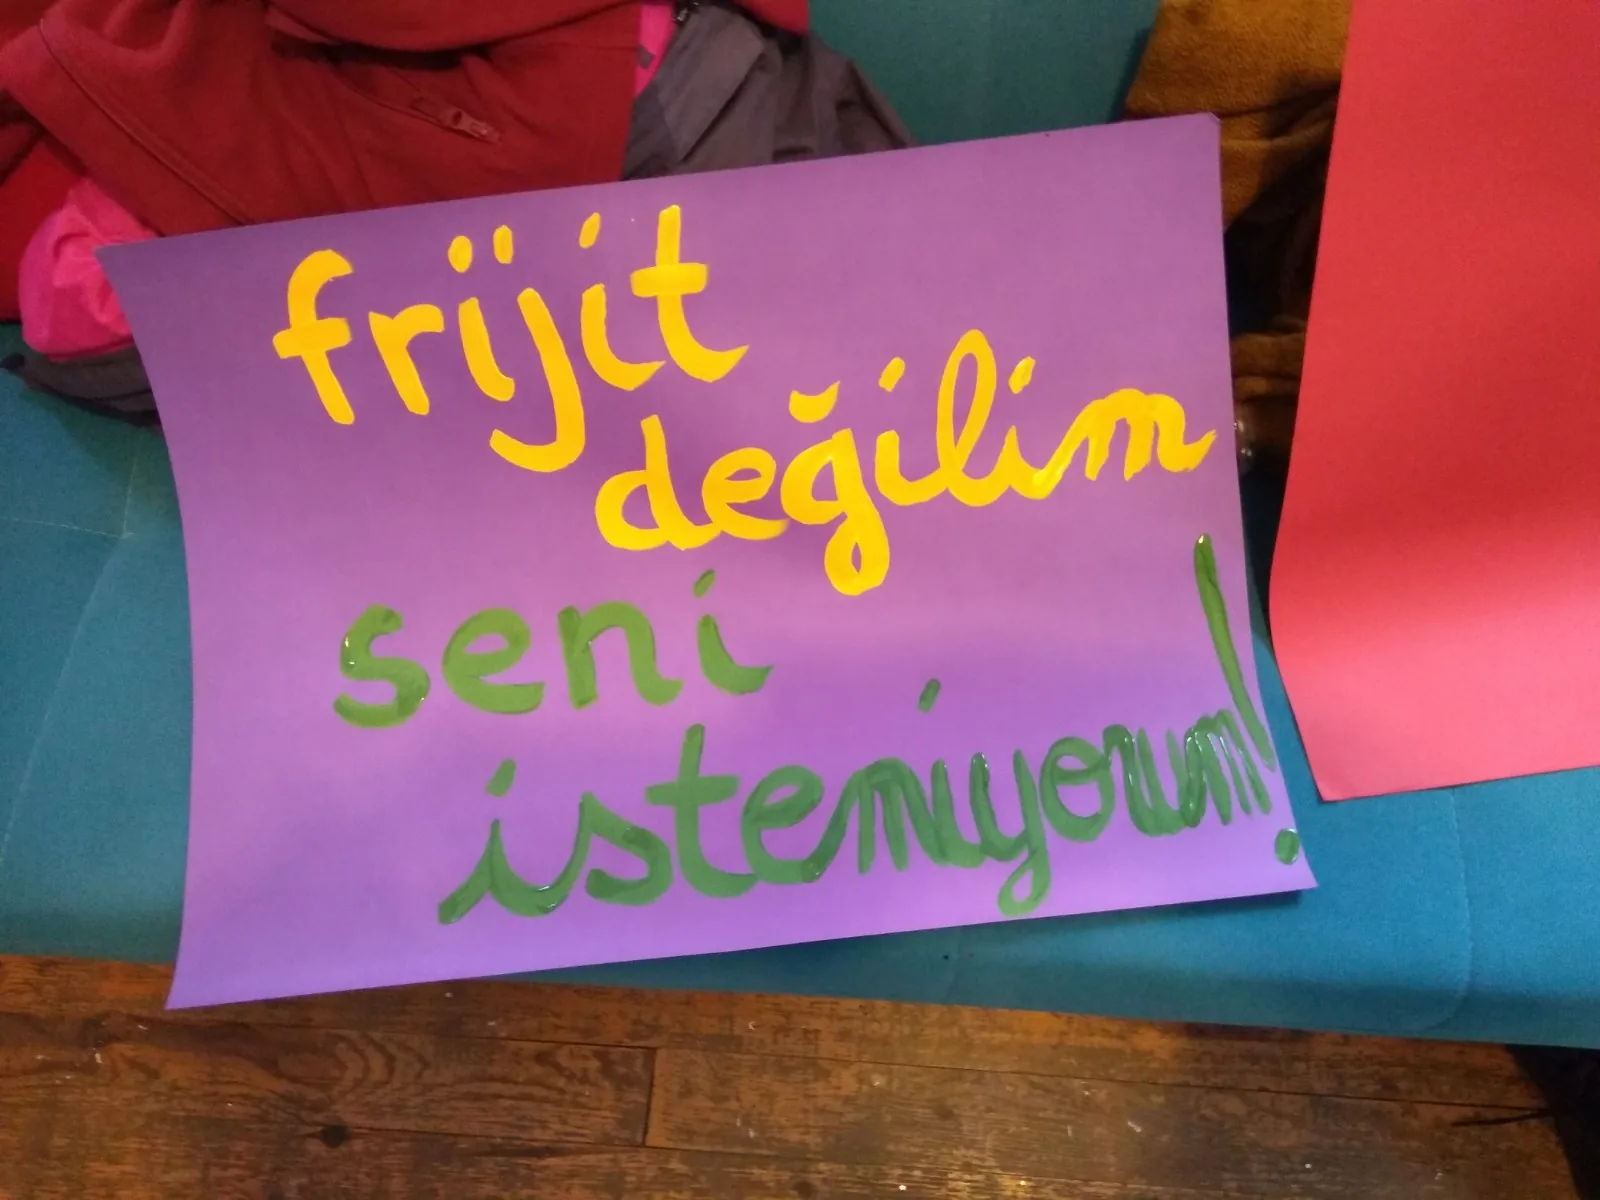 frijit
değilim
seni
isteniyorum!